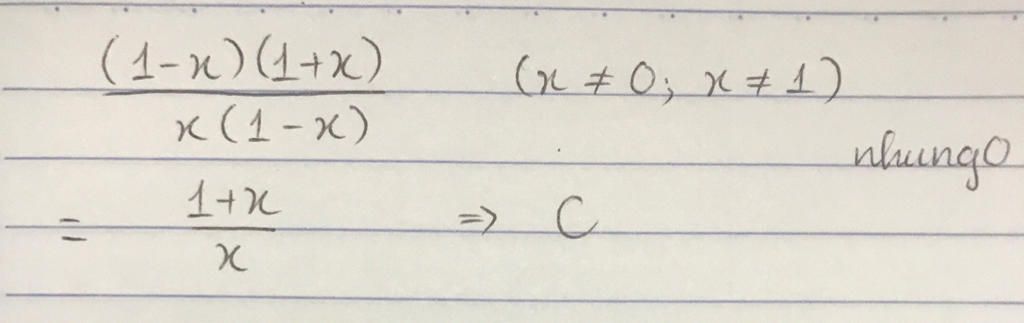 (1-x)(1+x) / x(1-x) (x ≠ 0; x ≠ 1)
nhung0
= 1+x / x ⇒ C